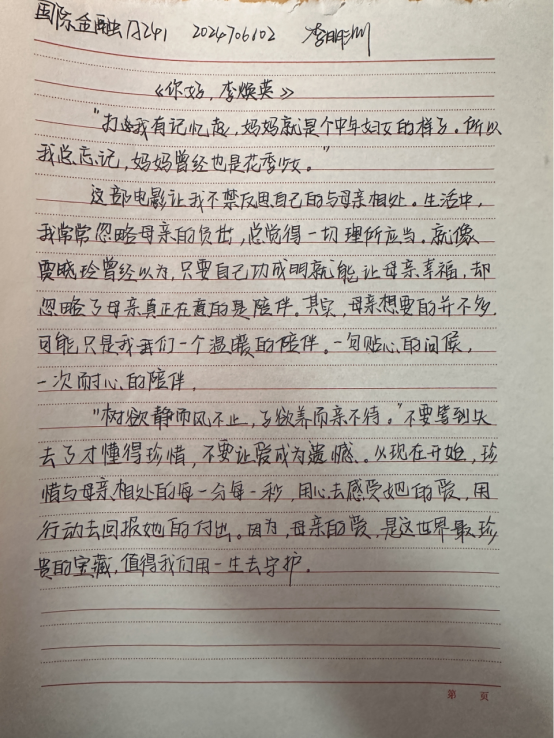 国际金融月241 2024706102 李明川
《你好,李焕英》
"打从我有记忆起,妈妈就是个中年妇女的样子。所以
我总忘记,妈妈曾经也是花季少女。"
这部电影让我不禁反思自己的与母亲相处。生活中,
我常常忽略母亲的负出,总觉得一切理所应当。就像
贾晓玲曾经以为,只要自己功成明就能让母亲幸福,却
忽略了母亲真正在意的是陪伴。其实,母亲想要的并不多,
可能只是我我们一个温暖的陪伴。一句贴心的问候,
一次耐心的陪伴。
"树欲静而风不止,子欲养而亲不待。"不要等到失
去了才懂得珍惜,不要让爱成为遗憾。从现在开始,珍
惜与母亲相处的每一分每一秒,用心去感受她的爱,用
行动去回报她的付出。因为,母亲的爱,是这世界最珍
贵的宝藏,值得我们用一生去守护。
第 页